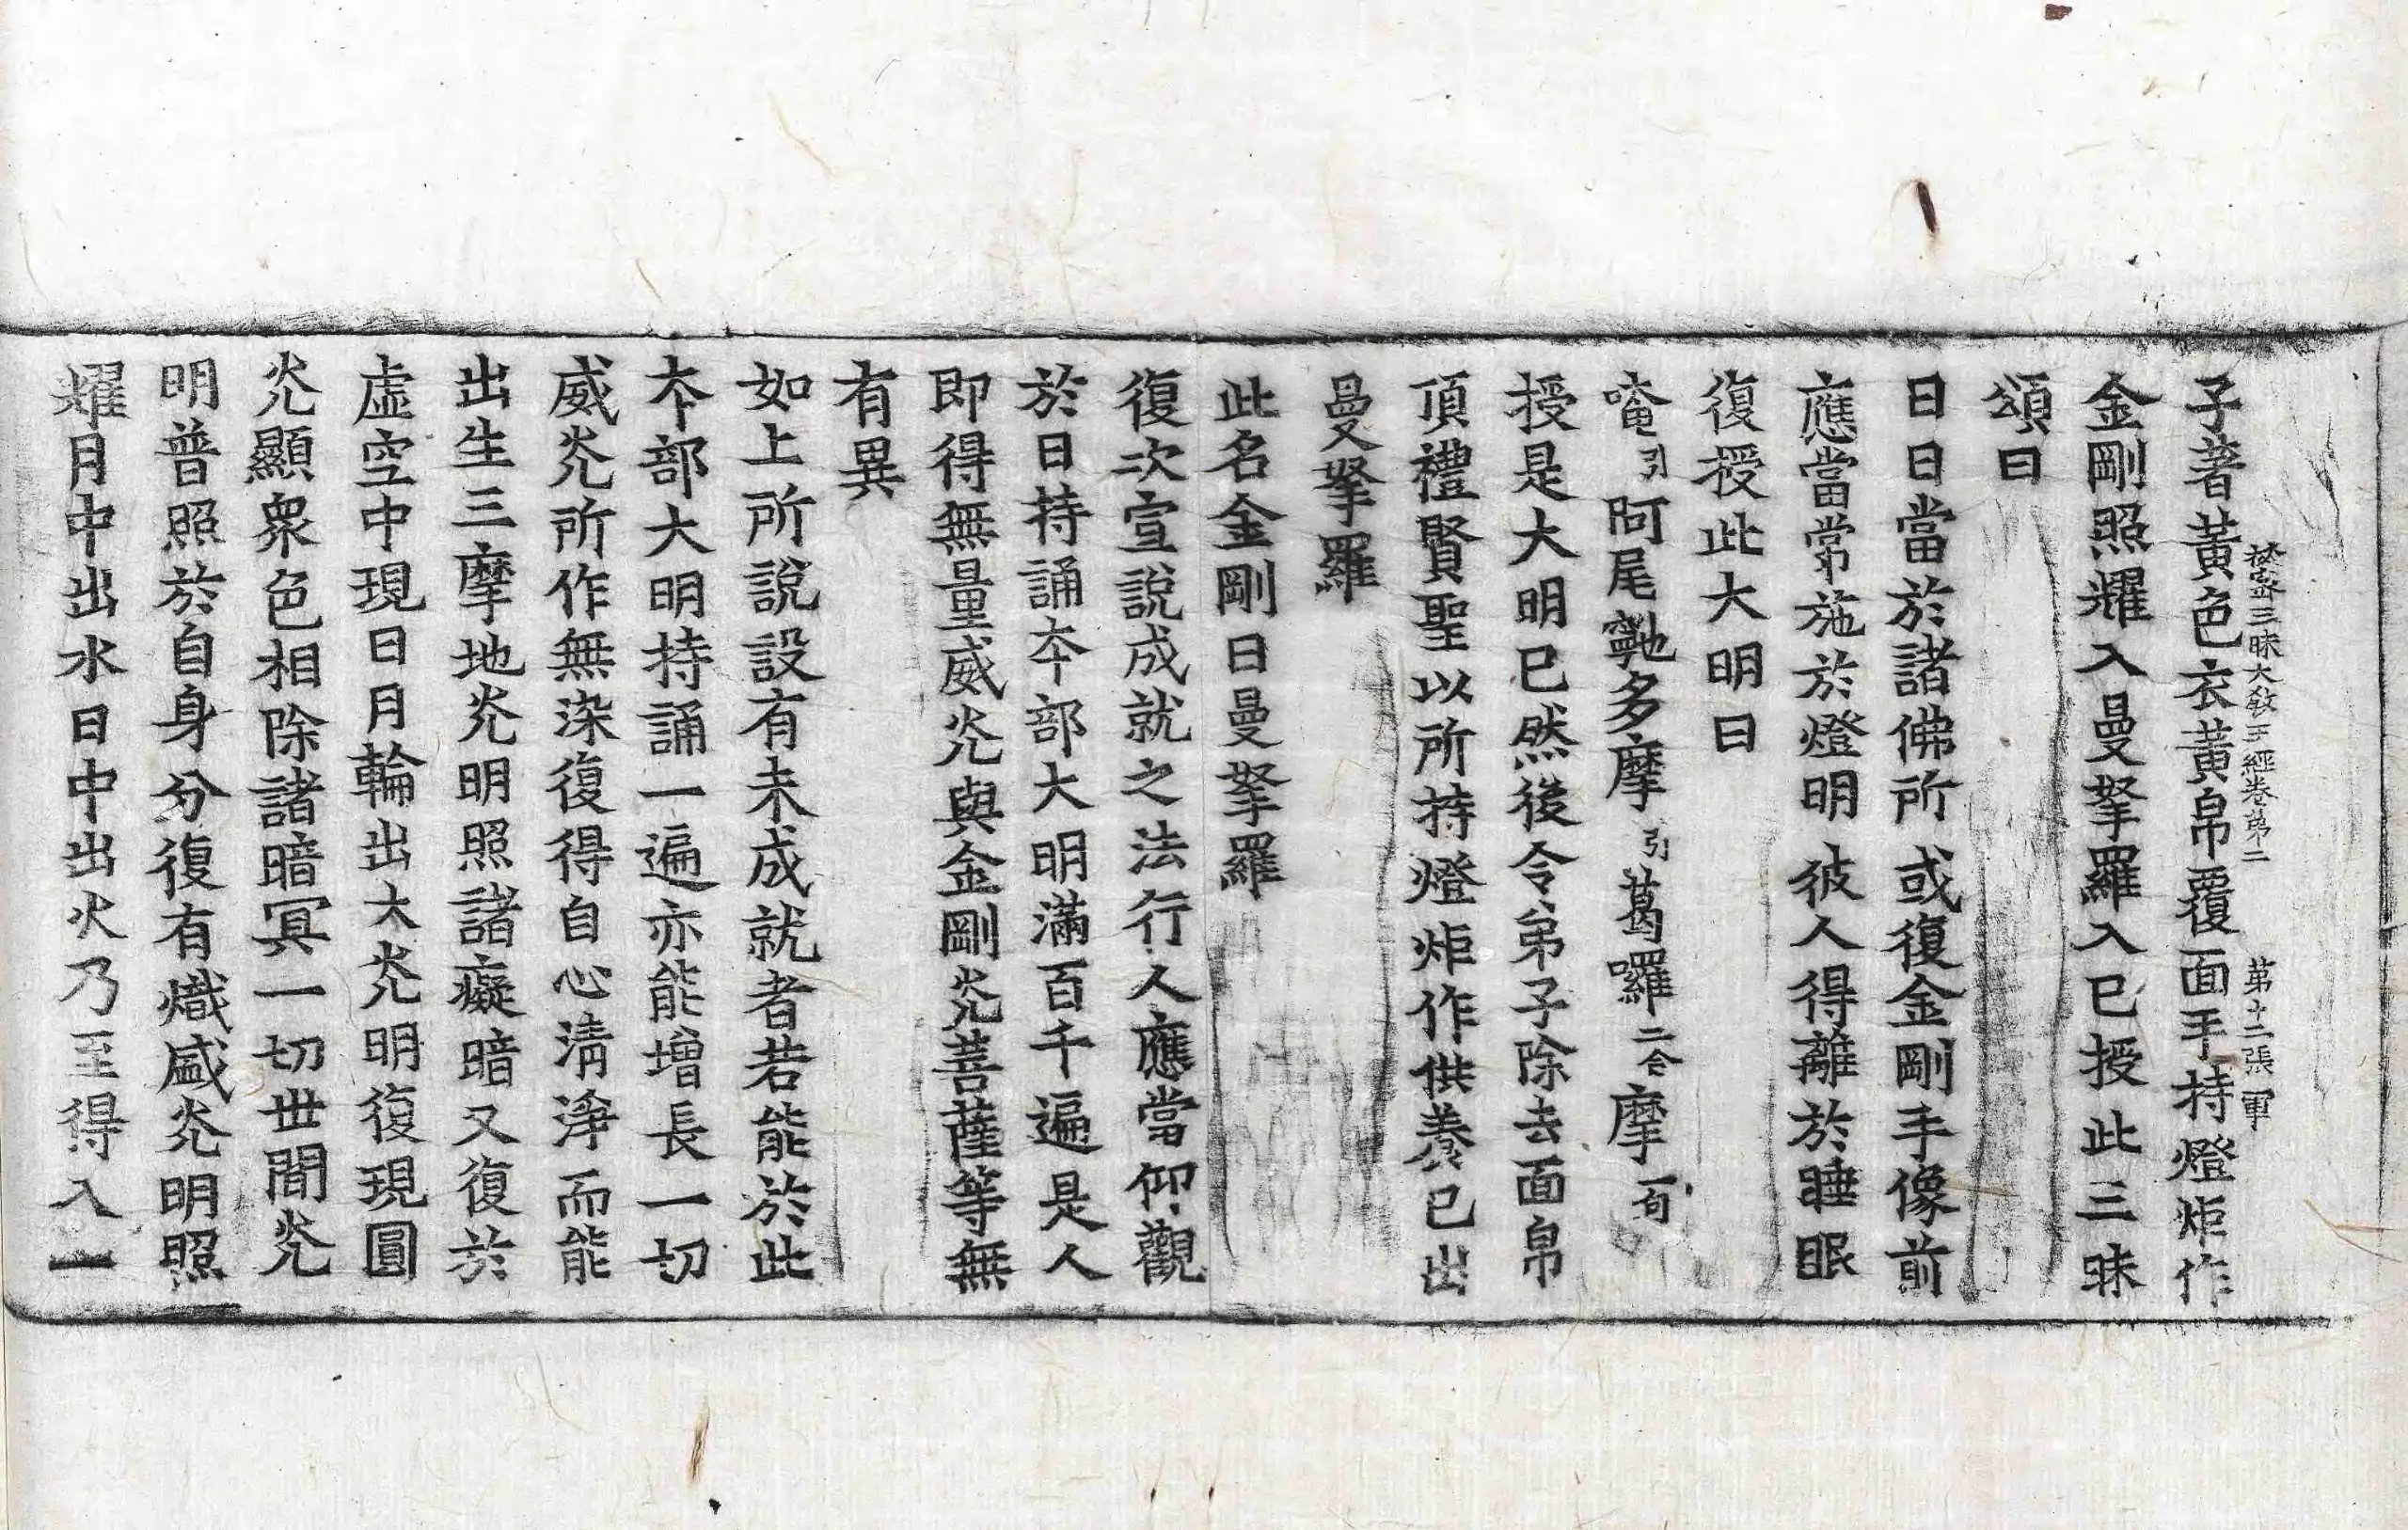 秘密三昧大教王經卷第二 第十二張 軍
子著黃色衣黃帛覆面手持燈炬作
金剛照耀入曼拏羅入已授此三昧
頌曰
日日當於諸佛所 或復金剛手像前
應當常施於燈明 彼人得離於睡眠
復授此大明曰
唵引阿尾𭌆多摩引葛囉二合摩一句
授是大明已然後令弟子除去面帛
頂禮賢聖以所持燈炬作供養已出
曼拏羅
此名金剛日曼拏羅
復次宣說成就之法行人應當仰觀
於日持誦夲部大明滿百千遍是人
即得無量威光與金剛光菩薩等無
有異
如上所說設有未成就者若能於此
夲部大明持誦一遍亦能增長一切
威光所作無染復得自心清淨而能
出生三摩地光明照諸癡暗又復於
虛空中現日月輪出大光明復現圓
光顯衆色相除諸暗冥一切世間光
明普照於自身分復有熾盛光明照
耀月中出水日中出火乃至得入一